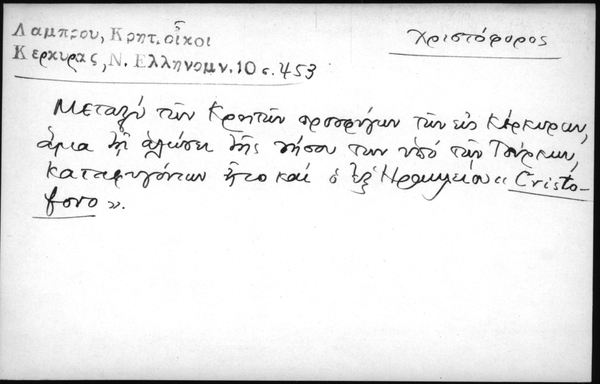 Λαμπρου, Κρητ. οἶκοι
Κερκυρας, Ν. Ελληνομν. 10 σ. 453
Χριστόφορος
Μεταξύ τῶν Κρητῶν προσφύγων τῶν εἰς Κέρκυραν,
ἅμα τῇ ἁλώσει τῆς νήσου των ὑπό τῶν Τούρκων,
καταφυγόντων ἦτο καί ὁ ἐξ Ἡρακλείου « Cristó-
fono ».